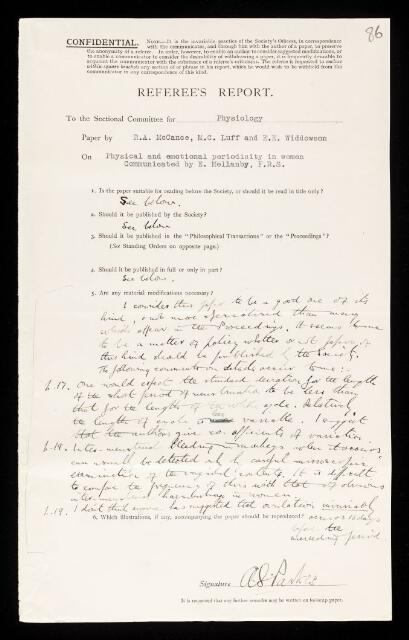 86
CONFIDENTIAL. NOTE.—It is the invariable practice of the Society's Officers, in correspondence
with the communicator, and through him with the author of a paper, to preserve
the anonymity of a referee. In order, however, to enable an author to consider suggested modifications, or
to enable a communicator to consider the desirability of withdrawing a paper, it is frequently desirable to
acquaint the communicator with the substance of a referee's criticisms. The referee is requested to enclose
within square brackets any action of or phrase in his report, which he would wish to be withheld from the
communicator in any correspondence of this kind.
REFEREE'S REPORT.
To the Sectional Committee for Physiology
Paper by R.A. McCance, M.C. Luff and E.E. Widdowson
On Physical and emotional periodicity in women
Communicated by E. Mellanby, F.R.S.
1. Is the paper suitable for reading before the Society, or should it be read in title only?
See below.
2. Should it be published by the Society?
See below
3. Should it be published in the "Philosophical Transactions" or the "Proceedings"?
(See Standing Orders on opposite page.)
4. Should it be published in full or only in part?
See below.
5. Are any material modifications necessary?
I consider this paper to be a good one of its
kind, and not more specialised than many
which appear in the Proceedings. It seems to me
to be a matter of policy whether or not papers of
this kind should be published by the Society.
The following comments on details occur to me:-
p. 17. One would expect the standard deviation for the length
of the short period of menstruation to be less than
that for the length of the whole cycle. Relatively
the length of is variable. I suggest
that the authors give coefficients of variation
p. 18. Intermenstrual bleeding in monkeys when it occurs
can usually be detected only by careful microscopic
examination of the vaginal contents. It is difficult
to compare the frequency of this with that of obvious
intermenstrual haemorrhage in women.
p. 19. I don't think anyone has suggested that ovulation invariably
6. Which illustrations, if any, accompanying the paper should be reproduced? occurs days
before the
succeeding period
Signature A S Parkes
It is requested that any further remarks may be written on foolscap paper.